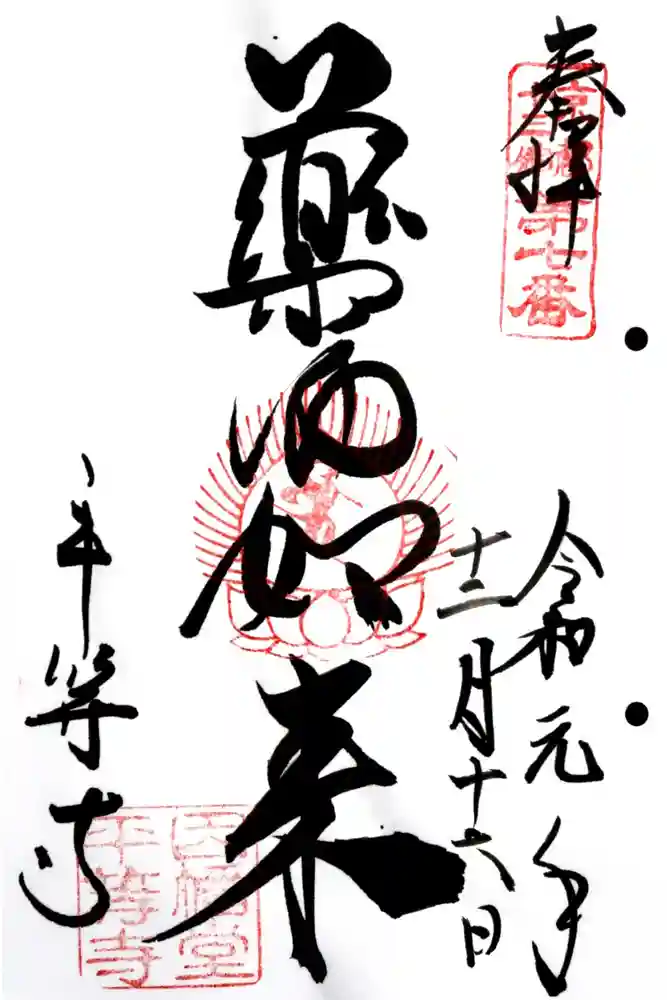 奉拝
京都十三佛第七番
令和元年
十二月十六日
薬師如来
平等寺
因幡堂
平等寺